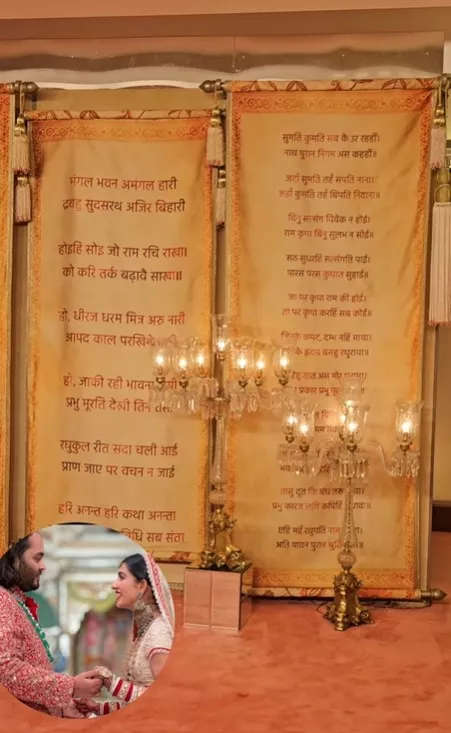 मंगल भवन अमंगल हारी
द्रवहु सुदसरथ अजिर बिहारी
होइहि सोइ जो राम रचि राखा।
को करि तर्क बढ़ावै साखा॥
हो, धीरज धरम मित्र अरु नारी
आपद काल परखिये
हो, जाकी रही भावना
प्रभु मूरति देखी तिन
रघुकुल रीत सदा चली आई
प्राण जाए पर वचन न जाई
हरि अनन्त हरि कथा अनन्ता
सब संता
सुमति कुमति सब कें उर रहहीं।
नाथ पुरान निगम अस कहहीं॥
जहाँ सुमति तहँ संपति नाना।
जहाँ कुमति तहँ बिपति निदाना॥
बिनु सत्संग विवेक न होई।
राम कृपा बिनु सुलभ न सोई॥
सठ सुधरहिं सत्संगति पाई।
पारस परस कुघात सुहाई॥
जा पर कृपा राम की होई।
ता पर कृपा करहिं सब कोई॥
कपट, दम्भ नहिं माया।
के हृदय बसहु रघुराया॥
तात अस मोर
प्रकार प्रभु
तासु दूत कि बंध तरु
प्रभु कारज लगि कपिहिं
एहि महँ रघुपति नाम
अति पावन पुरान